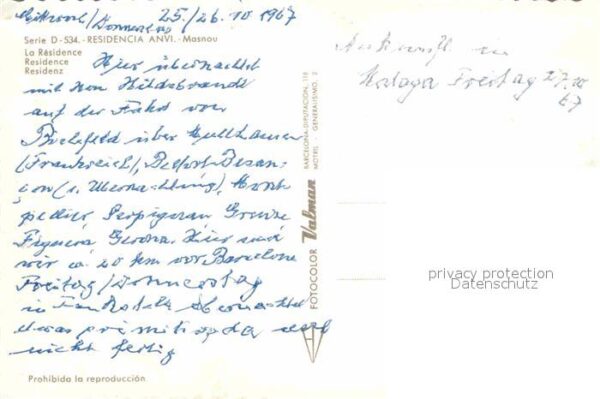 Mittwoch/Donnerstag 25./26.10 1967
Serie D-534.-RESIDENCIA ANVI.-Masnou
La Résidence
Residence
Residenz
Hier übernachtet
mit Herrn Hildebrandt
auf der Fahrt von
Bielefeld über Mülhausen
(Frankreich), Belfort, Besan-
çon (1. Übernachtung), Mont-
pellier, Perpignan Grenze
Figueras, Gerona. Hier sind
wir ca 20 km vor Barcelona
Freitag/Donnerstag
in übernachtet
etwas primitiv da noch
nicht fertig
Prohibida la reproducción
FOTOCOLOR Valman
BARCELONA-DIPUTACION, 118
MOTRIL - GENERALISIMO, 2
Ankunft in
Malaga Freitag 27.10
67
privacy protection
Datenschutz